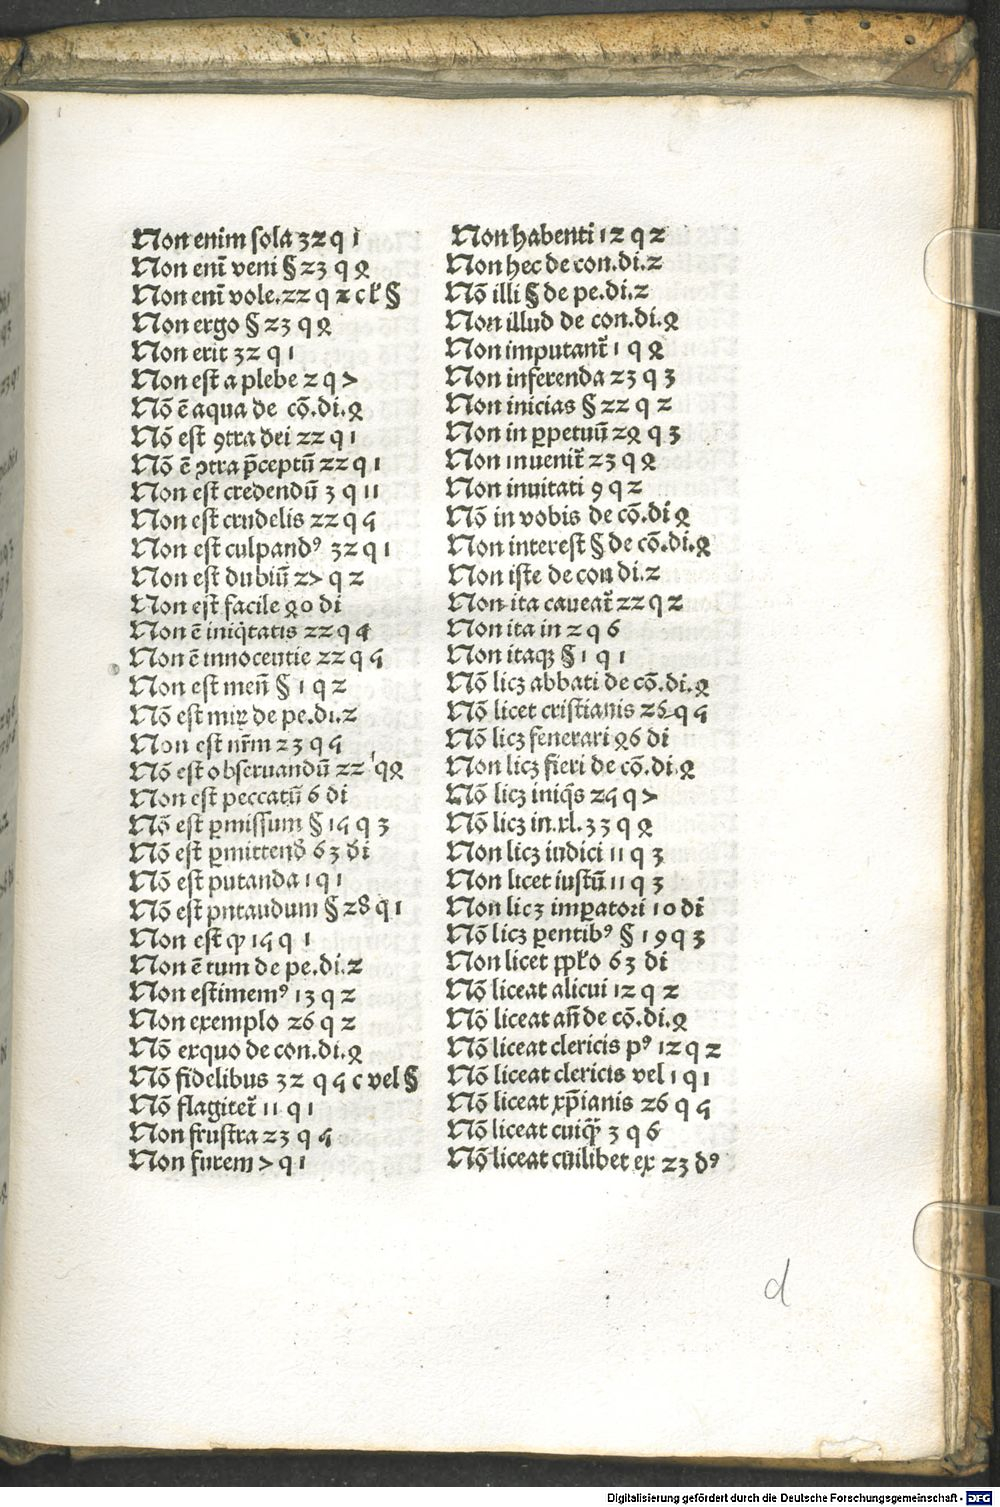 Non enim sola 32 q 1
Non enī veni § 23 q 4
Non enī vole. 22 q 2 c ł §
Non ergo § 23 q 4
Non erit 32 q 1
Non est a plebe 2 q 7
Nō ē aqua de cō.di.4
Nō est ꝯtra dei 22 q 1
Nō ē ꝯtra p̄ceptū 22 q 1
Non est credendū 3 q 11
Non est crudelis 22 q 5
Non est culpandꝰ 32 q 1
Non est dubiū 27 q 2
Non est facile 40 di
Non ē iniq̇tatis 22 q 5
Non ē innocentie 22 q 5
Non est men̄ § 1 q 2
Nō est miꝝ de pe.di.2
Non est nr̄m 23 q 5
Nō est obseruandū 22 q 4
Non est peccatū 6 di
Nō est ꝑmissum § 15 q 3
Nō est ꝑmittend̄ 63 di
Nō est putanda 1 q 1
Nō est pntandum § 28 q 1
Non est ꝙ 15 q 1
Non ē tum de pe.di.2
Non estimemꝰ 13 q 2
Non exemplo 26 q 2
Nō exquo de con.di.4
Nō fidelibus 32 q 5 c vel §
Nō flagitet̄ 11 q 1
Non frustra 23 q 5
Non furem 7 q 1
Non habenti 12 q 2
Non hec de con.di.2
Nō illi § de pe.di.2
Non illud de con.di.4
Non imputant̄ 1 q 4
Non inferenda 23 q 3
Non inicias § 22 q 2
Non in ꝑpetuū 24 q 3
Non inuenit̄ 23 q 4
Non inuitati 9 q 2
Nō in vobis de cō.di 4
Non interest § de cō.di.4
Non iste de con di.2
Non ita caueat̄ 22 q 2
Non ita in 2 q 6
Non itaqꝫ § 1 q 1
Nō licꝫ abbati de cō.di.4
Nō licet cristianis 26 q 5
Nō licꝫ fenerari 46 di
Non licꝫ fieri de cō.di.4
Nō licꝫ iniq̄s 25 q 7
Nō licꝫ in.xl. 33 q 4
Non licꝫ iudici 11 q 3
Non licet iustū 11 q 3
Non licꝫ imꝑatori 10 di
Nō licꝫ ꝑentibꝰ § 19 q 3
Non licet ppło 63 di
Nō liceat alicui 12 q 2
Nō liceat an̄ de cō.di.4
Nō liceat clericis pꝰ 12 q 2
Nō liceat clericis vel 1 q 1
Nō liceat xp̄ianis 26 q 5
Nō liceat cuiꝙ̄ 3 q 6
Nō liceat cuilibet ex 23 dꝰ
d
Digitalisierung gefördert durch die Deutsche Forschungsgemeinschaft - DFG